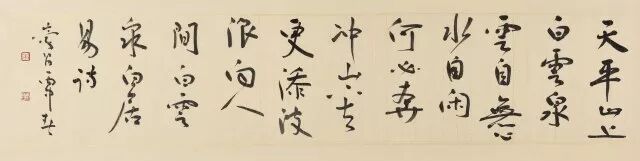 天平山上
白雲泉
雲自無心
水自闲
何必奔
冲山下去
更添波
浪向人
間白雲
泉白居
易诗